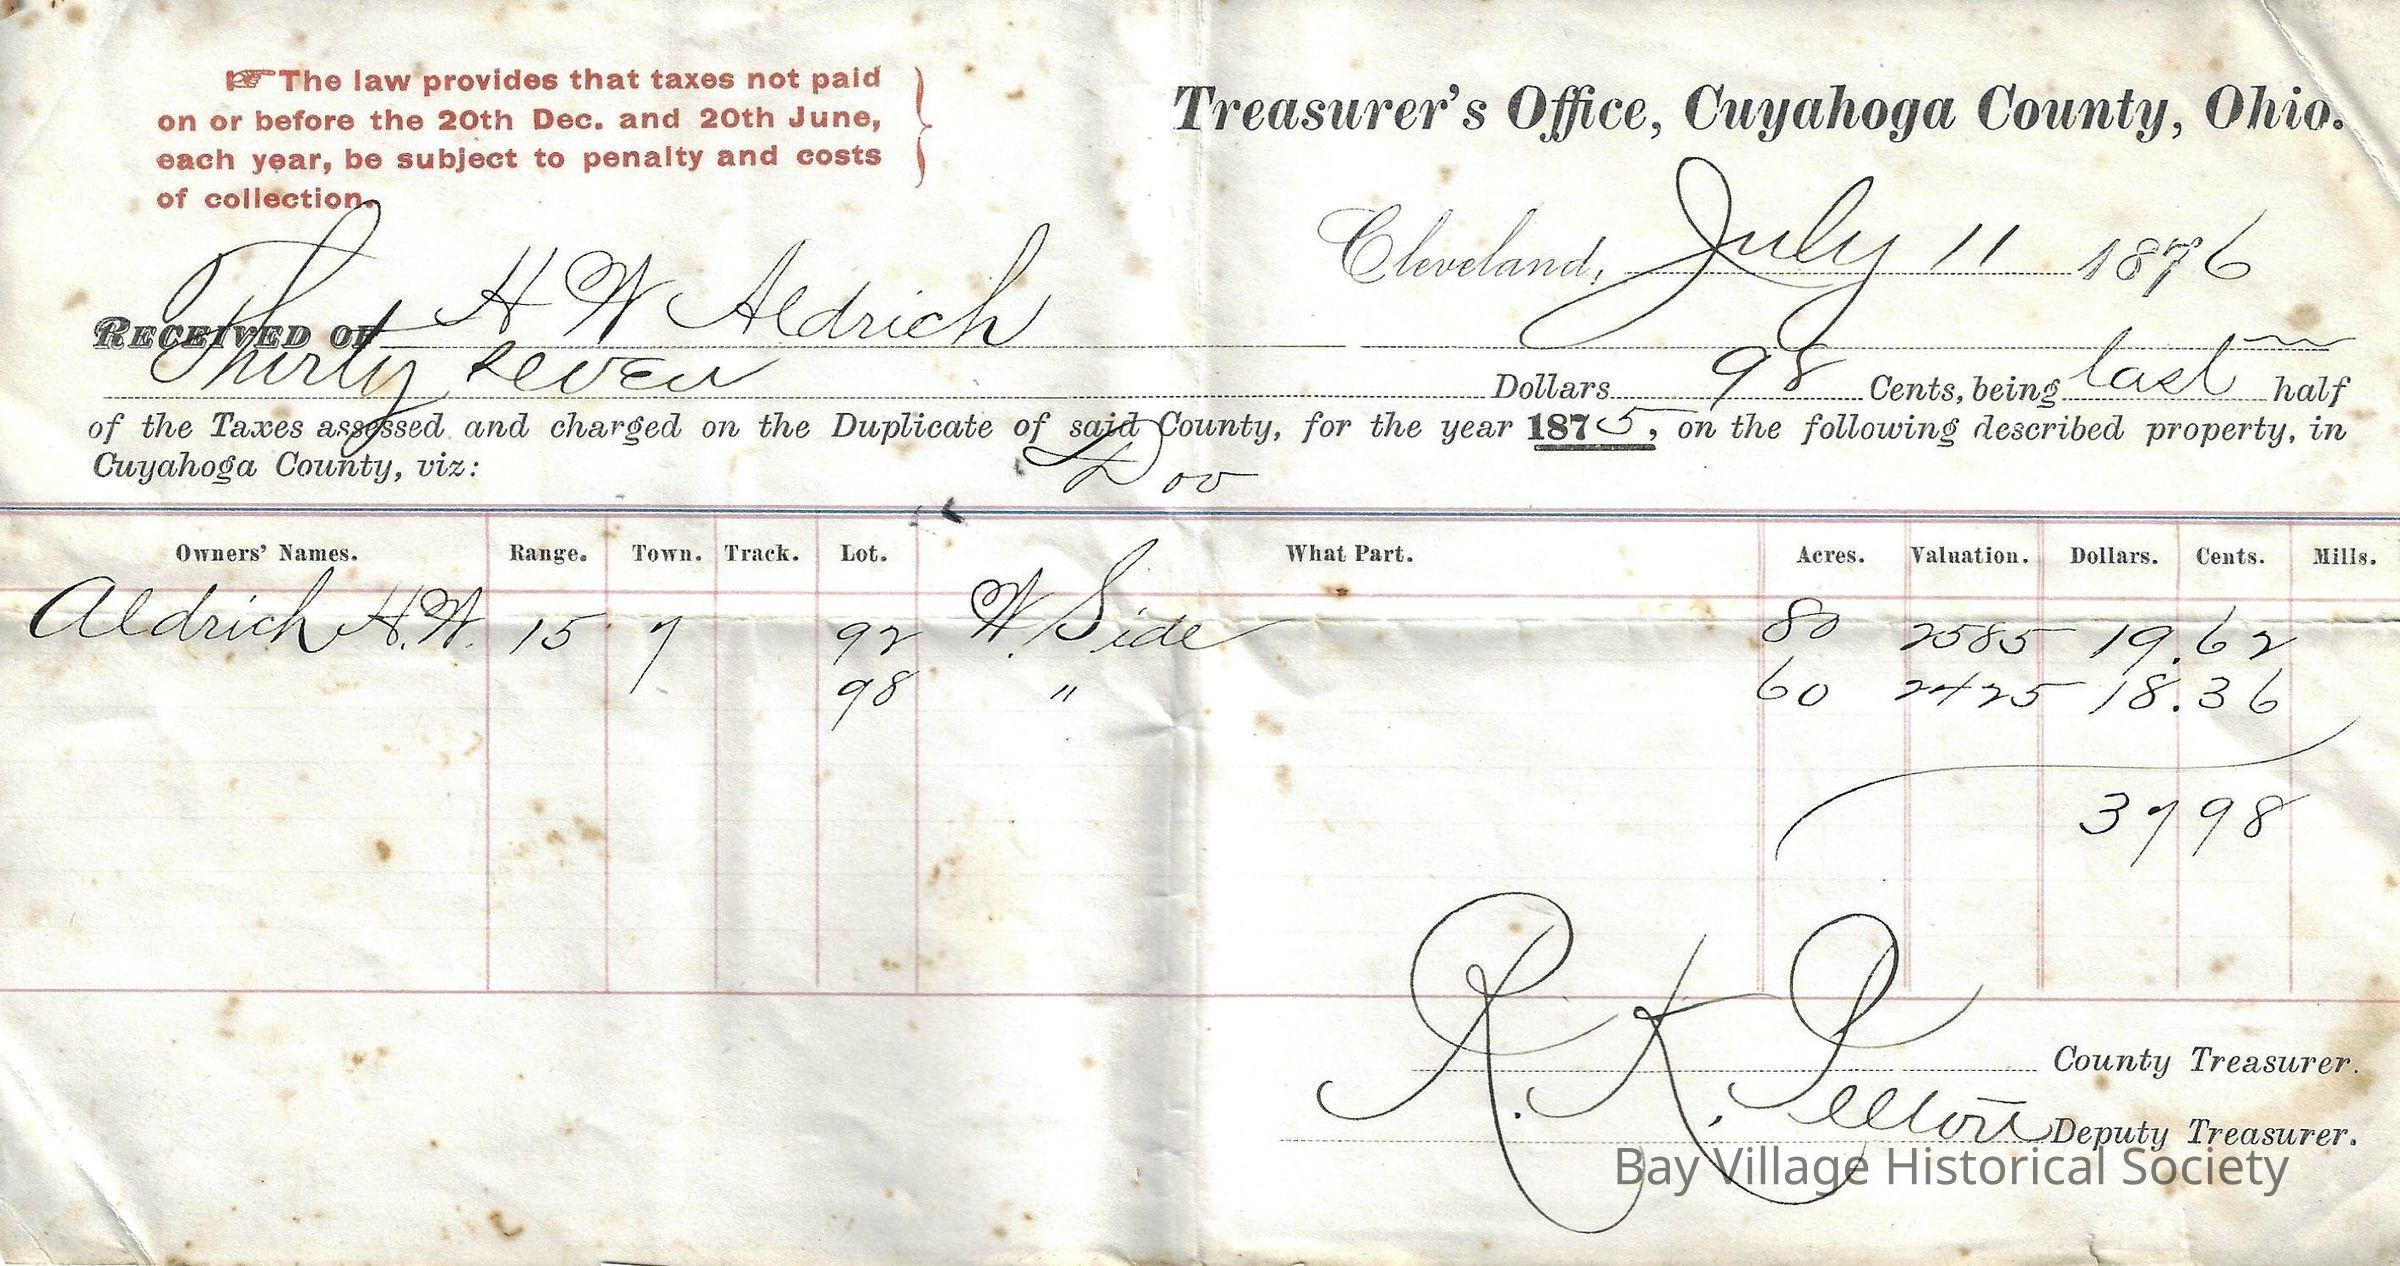 ☞The law provides that taxes not paid
on or before the 20th Dec. and 20th June,
each year, be subject to penalty and costs
of collection.
Treasurer's Office, Cuyahoga County, Ohio.
Cleveland, July 11 1876
RECEIVED OF H W Aldrich
Thirty seven Dollars 98 Cents, being last half
of the Taxes assessed and charged on the Duplicate of said County, for the year 1875, on the following described property, in
Cuyahoga County, viz:
Owners' Names. Range. Town. Track. Lot. What Part. Acres. Valuation. Dollars. Cents. Mills.
Aldrich H.W. 15 7 92 W. Side 80 2585 19.62
98 " 60 2425 18.36
37 98
R. K. Pelton
County Treasurer.
Deputy Treasurer.
Bay Village Historical Society